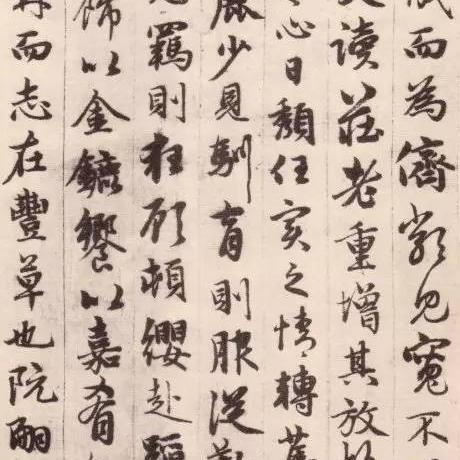 而為儕類見寬不
讀莊老重增其放
心日頹任實之情轉
鹿少見馴育則服從
羈則狂顧頓纓赴蹈
飾以金鑣饗以嘉肴
而志在豐草也阮嗣